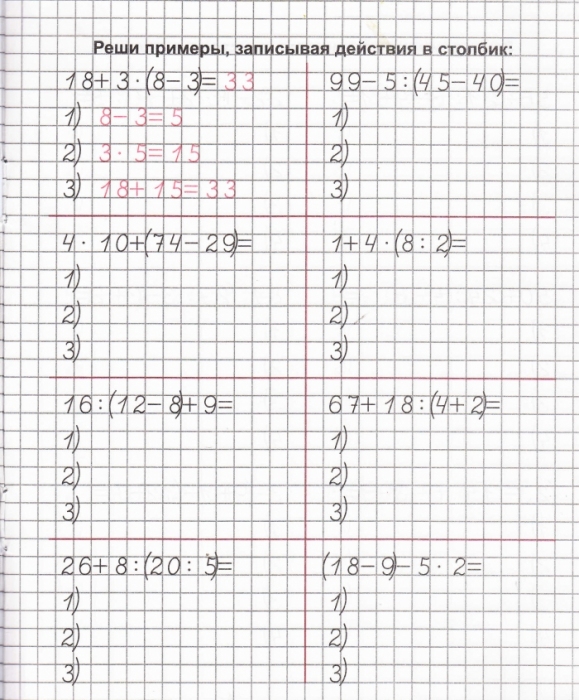 Реши примеры, записывая действия в столбик:
18+3·(8-3)=33
1) 8-3=5
2) 3·5=15
3) 18+15=33
99-5:(45-40)=
1)
2)
3)
4·10+(74-29)=
1)
2)
3)
1+4·(8:2)=
1)
2)
3)
16:(12-8)+9=
1)
2)
3)
67+18:(4+2)=
1)
2)
3)
26+8:(20:5)=
1)
2)
3)
(18-9)-5·2=
1)
2)
3)